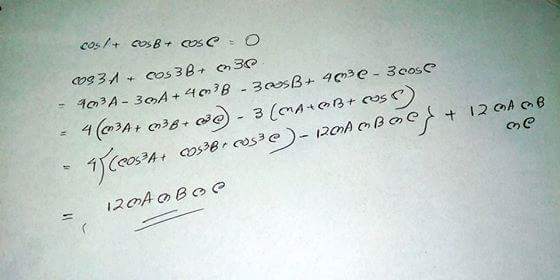 cos A + cosB + cosC = 0
cos3A + cos3B + cos3C
= 4cos³A - 3cosA + 4cos³B - 3cosB + 4cos³C - 3cosC
= 4(cos³A + cos³B + cos³C) - 3(cosA + cosB + cosC)
= 4{(cos³A + cos³B + cos³C) - 12cosA cosB cosC} + 12 cosA cosB cosC
= 12 cosA cosB cosC